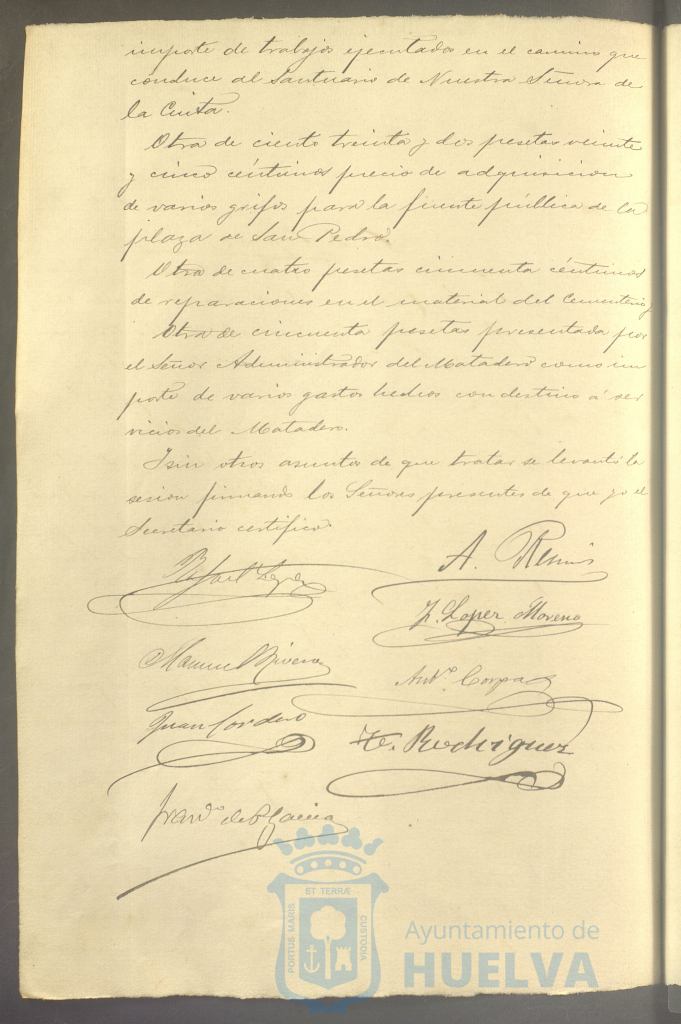 importe de trabajos ejecutados en el camino que
conduce al Santuario de Nuestra Señora de
la Cinta.
Otra de ciento treinta y dos pesetas veinte
y cinco céntimos precio de adquisicion
de varios grifos para la fuente pública de la
plaza de San Pedro.
Otra de cuatro pesetas cincuenta céntimos
de reparaciones en el material del Cementerio y
Otra de cincuenta pesetas presentada por
el Señor Administrador del Matadero como im
porte de varios gastos hechos con destino á ser
vicios del Matadero.
I sin otros asuntos de que tratar se levantó la
sesion firmando los Señores presentes de que yo el
Secretario certifico.
A.
Lopez Moreno
Manuel Rivera
Antº. Corpas
Juan Cordero
Rodriguez
Franco. de P.
ET TERRÆ
PORTUS MARIS
CUSTODIA
Ayuntamiento de
HUELVA